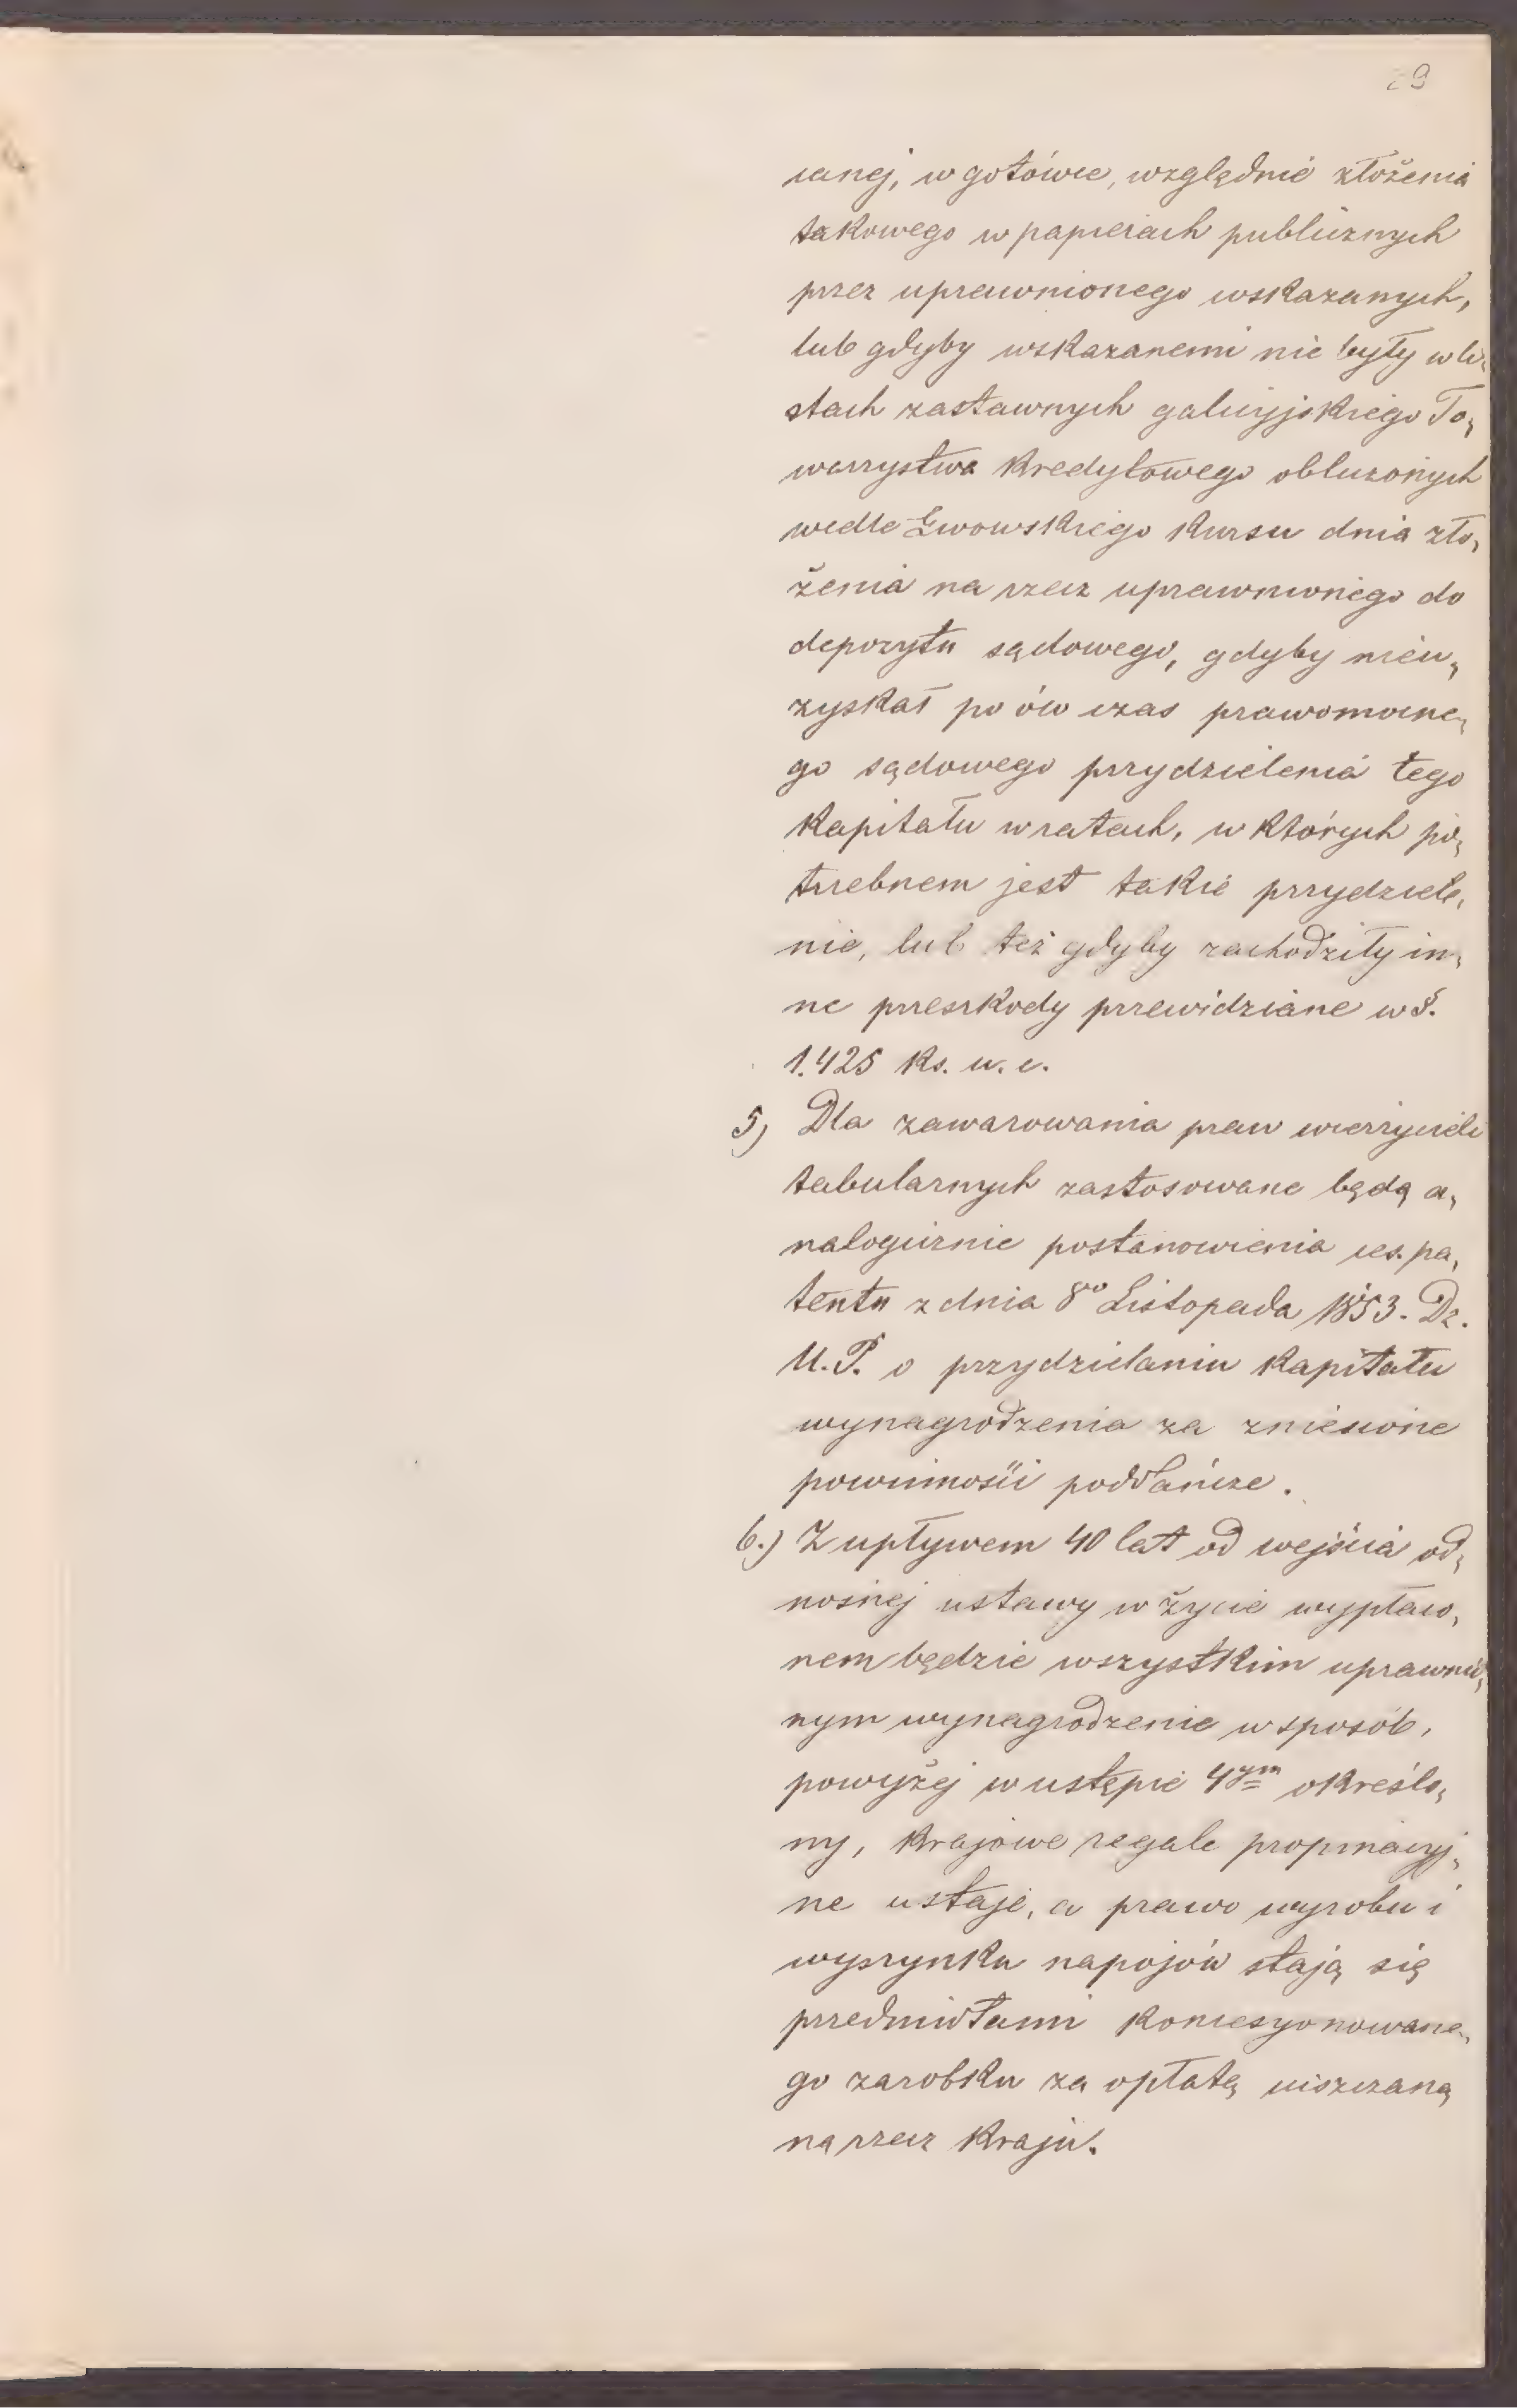 29
canej, w gotówce, względnie złożenia
takowego w papierach publicznych
przez uprawnionego wskazanych,
lub gdyby wskazanemi nie były w li-
stach zastawnych galicyjskiego To-
warzystwa kredytowego obliczonych
wedle Lwowskiego kursu dnia zło-
żenia na rzecz uprawnionego do
depozytu sądowego, gdyby nieu-
zyskał po ów czas prawomocne-
go sądowego przydzielenia tego
kapitału w ratach, w których po-
trzebnem jest takie przydziele-
nie, lub też gdyby zachodziły in-
ne przeszkody przewidziane w §.
1.425 ks. u. c.
5) Dla zawarowania praw wierzycieli
tabularnych zastosowane będą a-
nalogicznie postanowienia ces. pa-
tentu z dnia 8go Listopada 1853. Dz.
U. P. o przydzielaniu kapitału
wynagrodzenia za zniesione
powinności poddańcze.
6.) Z upływem 40 lat od wejścia od-
nośnej ustawy w życie wypłaco-
nem będzie wszystkim uprawnio-
nym wynagrodzenie w sposób,
powyżej w ustępie 4ym określo-
ny, krajowe regale propinacyj-
ne ustaje, a prawo wyrobu i
wyszynku napojów stają się
przedmiotami koncesyonowane-
go zarobku za opłatą uiszczaną
na rzecz kraju.